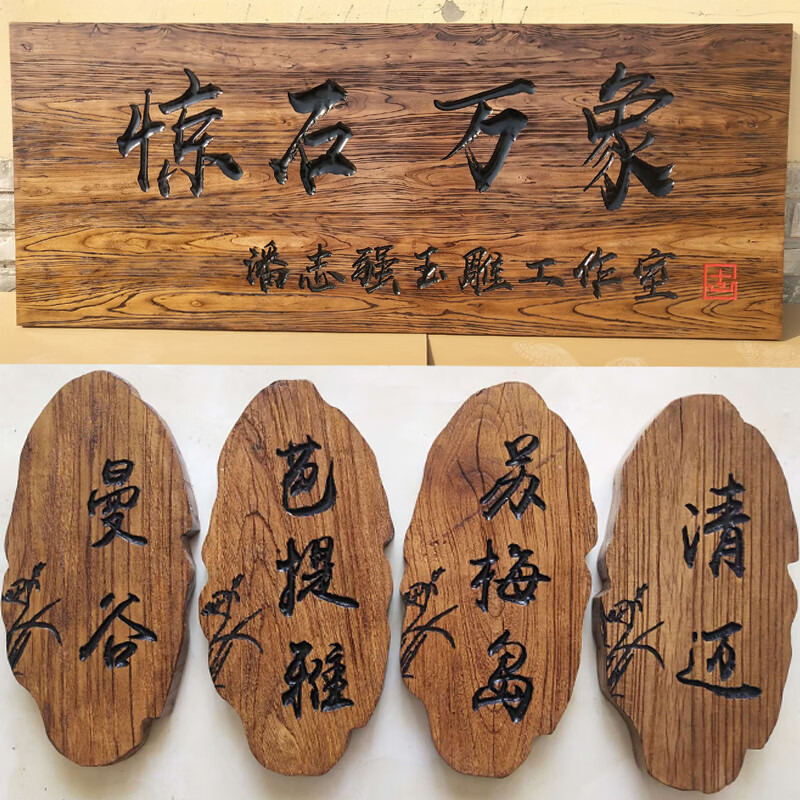 惊石万象
潘志强玉雕工作室
曼谷
芭提雅
苏梅岛
清迈